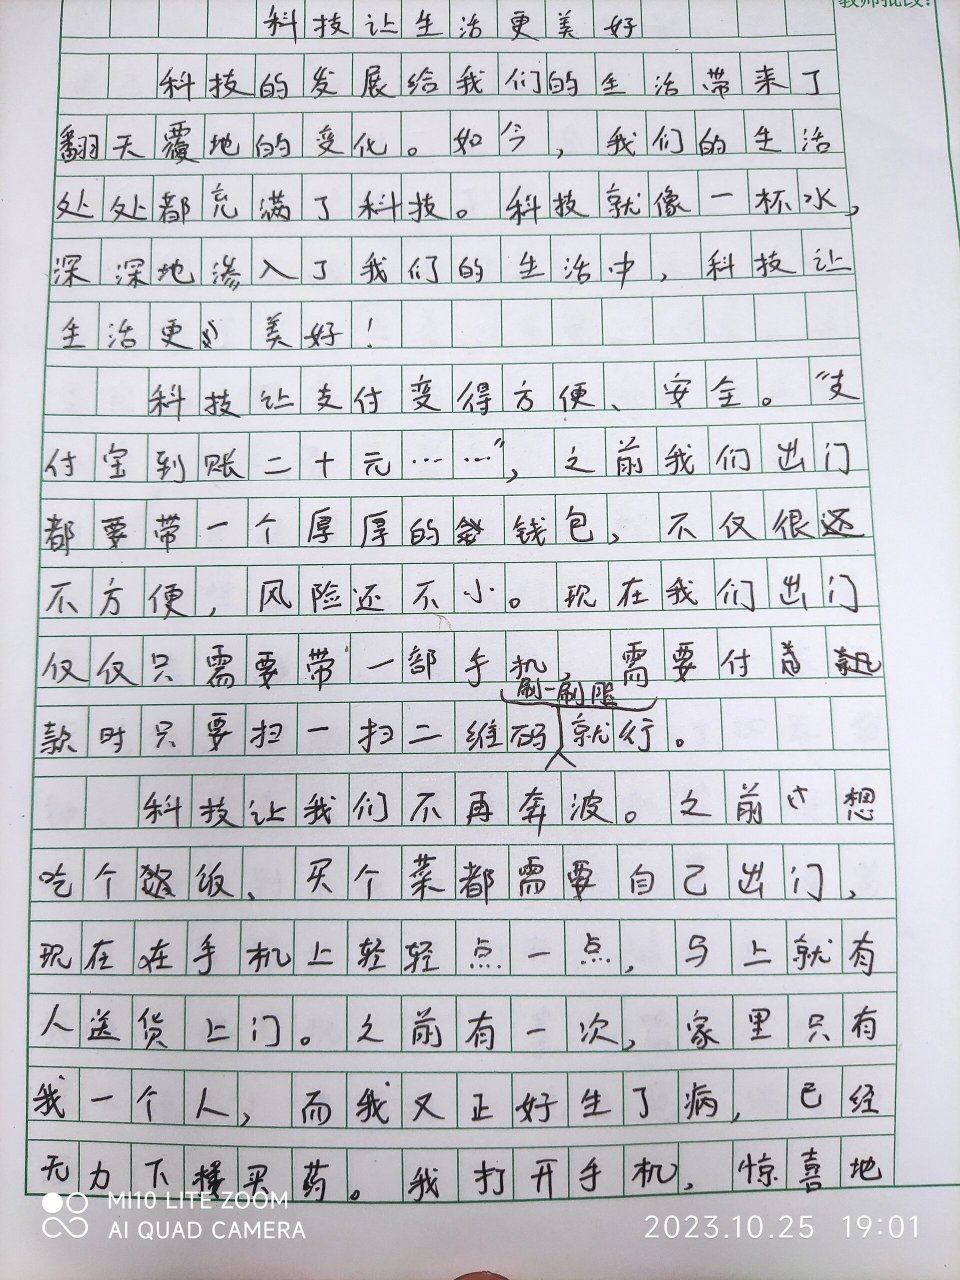 教师批改：
科技让生活更美好
科技的发展给我们的生活带来了
翻天覆地的变化。如今，我们的生活
处处都充满了科技。科技就像一杯水，
深深地渗入了我们的生活中，科技让
生活更美好！
科技让支付变得方便、安全。“支
付宝到账二十元……”，之前我们出门
都要带一个厚厚的钱包，不仅很还
不方便，风险还不小。现在我们出门
仅仅只需要带一部手机，需要付
刷一刷脸
款时只要扫一扫二维码就行。
科技让我们不再奔波。之前想
吃个饭、买个菜都需要自己出门，
现在在手机上轻轻点一点，马上就有
人送货上门。之前有一次，家里只有
我一个人，而我又正好生了病，已经
无力下楼买药。我打开手机，惊喜地
MI10 LITE ZOOM
AI QUAD CAMERA
2023.10.25 19:01